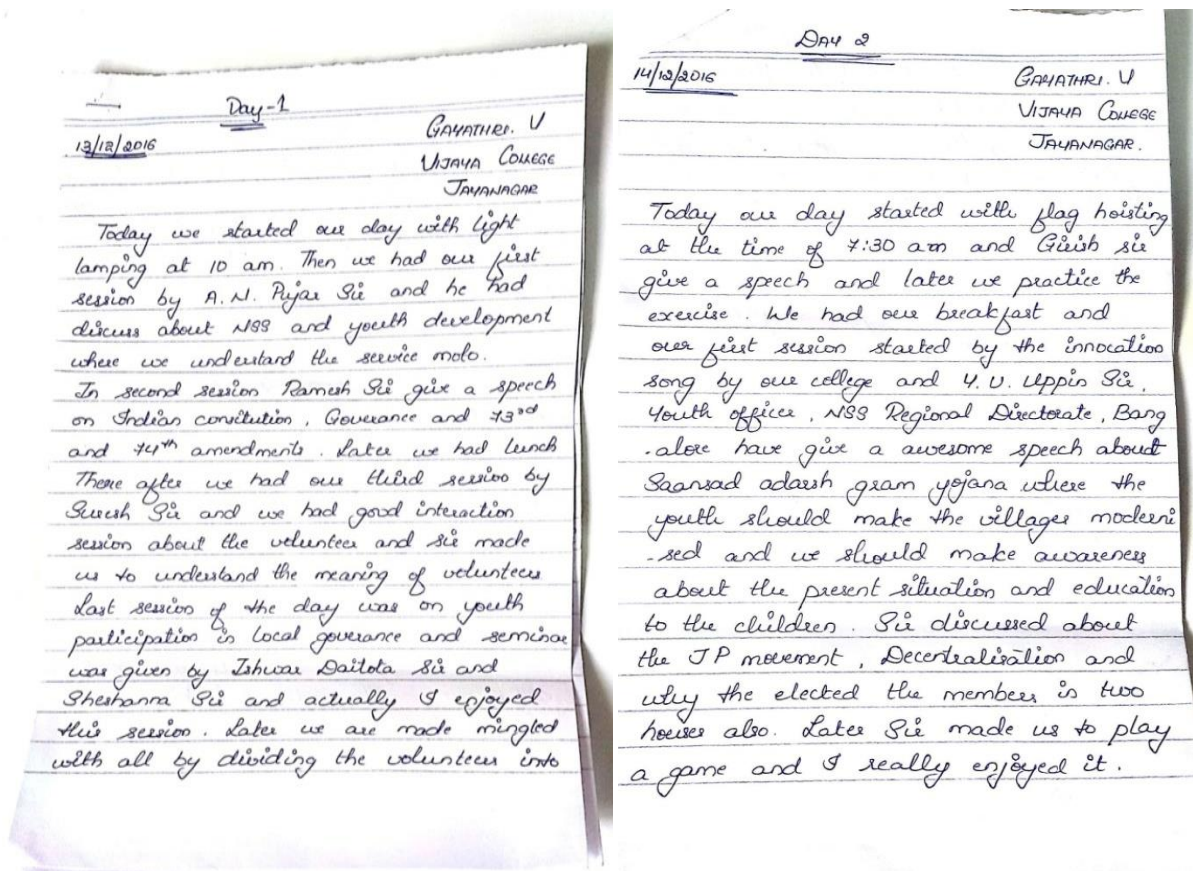 Day-1
13/12/2016
GAYATHRI. V
VIJAYA COLLEGE
JAYANAGAR
Today we started our day with light
lamping at 10 am. Then we had our first
session by A. N. Pujar Sir and he had
discuss about NSS and youth development
where we understand the service moto.
In second session Ramesh Sir give a speech
on Indian convitution, Goverance and 73rd
and 74th amendments. Later we had lunch
There after we had our third session by
Suresh Sir and we had good interaction
session about the volunteer and sir made
us to understand the meaning of volunteers
Last session of the day was on youth
participation in local goverance and seminar
was given by Ishwar Daitota Sir and
Sheshanna Sir and actually I enjoyed
this session. Later we are made mingled
with all by dividing the volunteers into
DAY 2
14/12/2016
GAYATHRI. V
VIJAYA COLLEGE
JAYANAGAR.
Today our day started with flag hoisting
at the time of 7:30 am and Girish sir
give a speech and later we practice the
exercise. We had our breakfast and
our first session started by the innocation
song by our college and Y. U. Uppin Sir,
Youth officer, NSS Regional Directorate, Bang
-alore have give a awesome speech about
Saansad adarsh gram yojana where the
youth should make the villages moderni
-sed and we should make awareness
about the present situation and education
to the children. Sir discussed about
the JP movement, Decentralisation and
why the elected the members in two
houses also. Later Sir made us to play
a game and I really enjoyed it.